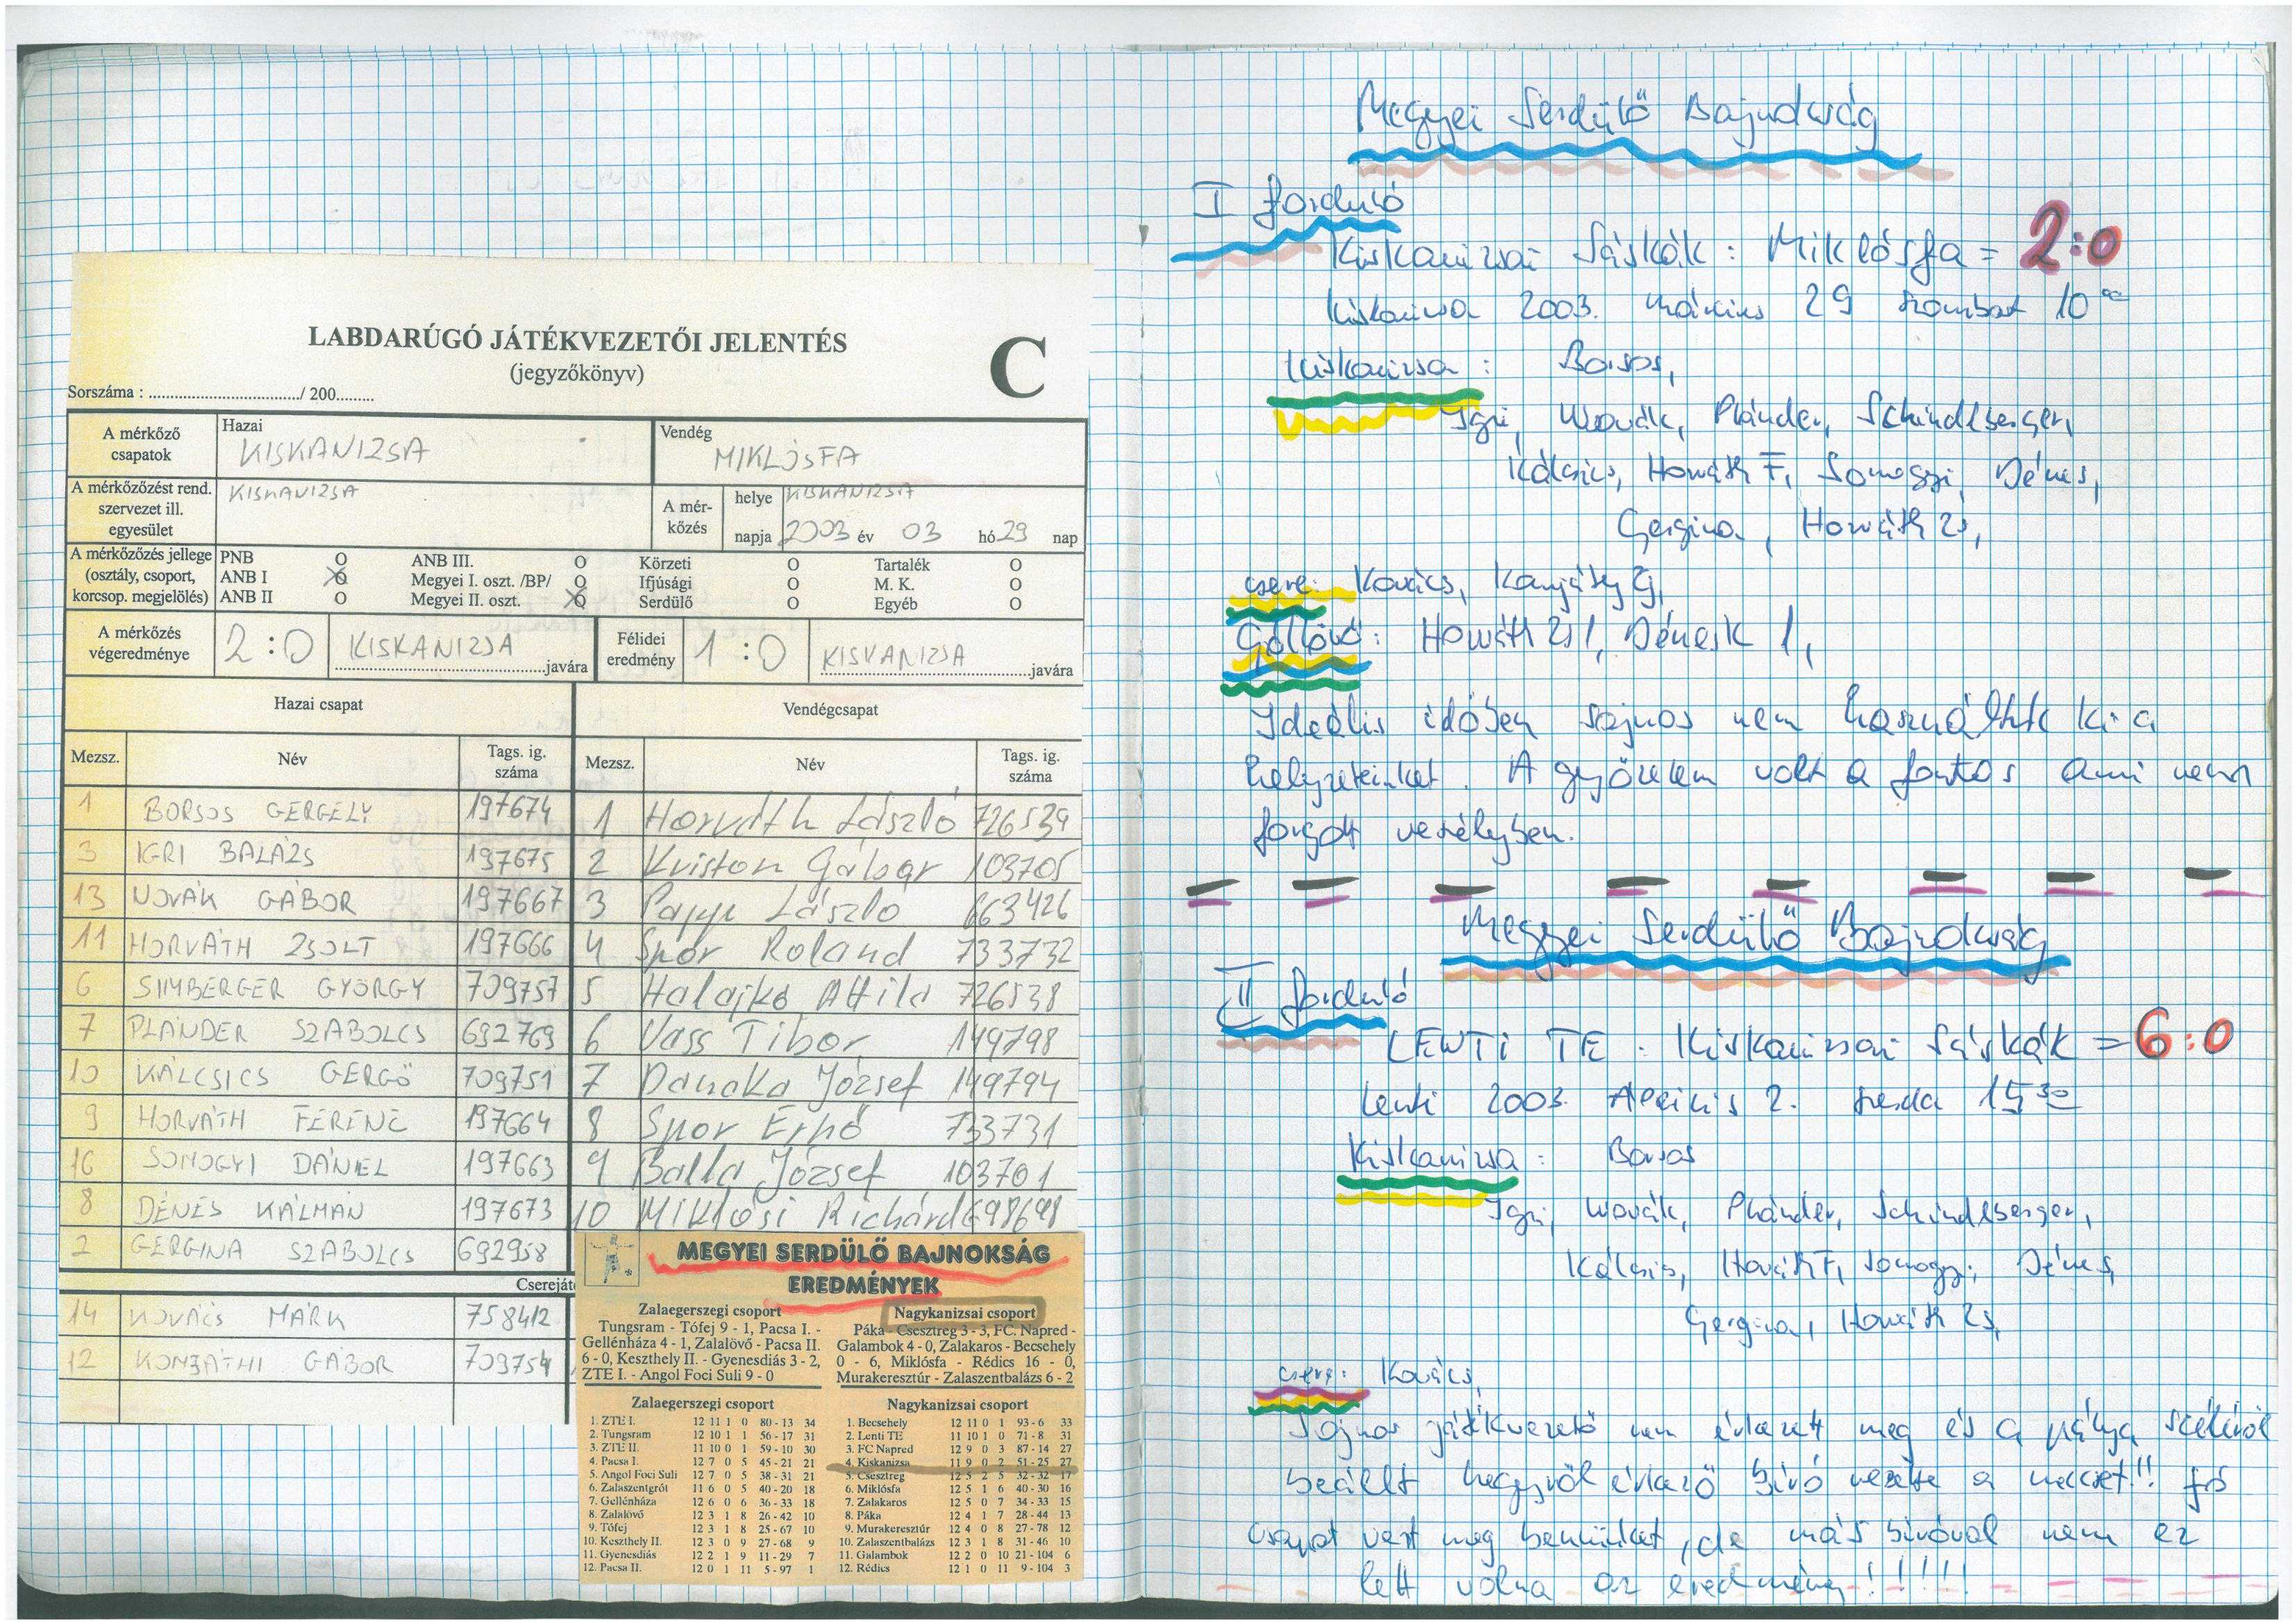 LABDARÚGÓ JÁTÉKVEZETŐI JELENTÉS
(jegyzőkönyv)
C
Sorszáma : ................................/ 200.........
A mérkőző csapatok
Hazai
KISKANIZSA
Vendég
MIKLÓSFA
A mérkőzőzést rend. szervezet ill. egyesület
KISKANIZSA
A mér-kőzés
helye KISKANIZSA
napja 2003 év 03 hó 29 nap
A mérkőzőzés jellege (osztály, csoport, korcsop. megjelölés)
PNB O ANB III. O Körzeti O Tartalék O
ANB I O Megyei I. oszt. /BP/ O Ifjúsági O M. K. O
ANB II O Megyei II. oszt. O Serdülő O Egyéb O
A mérkőzés végeredménye
2:0 KISKANIZSA javára
Félidei eredmény
1:0 KISKANIZSA javára
Hazai csapat Vendégcsapat
Mezsz. Név Tags. ig. száma Mezsz. Név Tags. ig. száma
1 BORSOS GERGELY 197674 1 Horváth László 726539
3 IGRI BALÁZS 197675 2 Kriston Gábor 103705
13 NOVÁK GÁBOR 197667 3 Papp László 663426
11 HORVÁTH ZSOLT 197666 4 Spór Roland 733732
6 SIMBERGER GYÖRGY 709757 5 Halajkó Attila 726538
7 PLÁNDER SZABOLCS 692769 6 Vass Tibor 149798
10 KÁLCSICS GERGŐ 709751 7 Danaka József 149794
9 HORVÁTH FERENC 197664 8 Spor Ernő 733731
16 SOMOGYI DÁNIEL 197663 9 Balla József 103701
8 DÉNES KÁLMÁN 197673 10 Miklósi Richárd 698698
2 GERGINA SZABOLCS 692958
Cserejáté
14 KOVÁCS MÁRK 758412
12 GÁBOR 709754
MEGYEI SERDÜLŐ BAJNOKSÁG
EREDMÉNYEK
Zalaegerszegi csoport
Tungsram - Tófej 9 - 1, Pacsa I. -
Gellénháza 4 - 1, Zalalövő - Pacsa II.
6 - 0, Keszthely II. - Gyenesdiás 3 - 2,
ZTE I. - Angol Foci Suli 9 - 0
Nagykanizsai csoport
Páka - Csesztreg 3 - 3, FC. Napred -
Galambok 4 - 0, Zalakaros - Becsehely
0 - 6, Miklósfa - Rédics 16 - 0,
Murakeresztúr - Zalaszentbalázs 6 - 2
Zalaegerszegi csoport
1. ZTE I. 12 11 1 0 80 - 13 34
2. Tungsram 12 10 1 1 56 - 17 31
3. ZTE II. 11 10 0 1 59 - 10 30
4. Pacsa I. 12 7 0 5 45 - 21 21
5. Angol Foci Suli 12 7 0 5 38 - 31 21
6. Zalaszentgrót 11 6 0 5 40 - 20 18
7. Gellénháza 12 6 0 6 36 - 33 18
8. Zalalövő 12 3 1 8 26 - 42 10
9. Tófej 12 3 1 8 25 - 67 10
10. Keszthely II. 12 3 0 9 27 - 68 9
11. Gyenesdiás 12 2 1 9 11 - 29 7
12. Pacsa II. 12 0 1 11 5 - 97 1
Nagykanizsai csoport
1. Becsehely 12 11 0 1 93 - 6 33
2. Lenti TE 11 10 1 0 71 - 8 31
3. FC Napred 12 9 0 3 87 - 14 27
4. Kiskanizsa 11 9 0 2 51 - 25 27
5. Csesztreg 12 5 2 5 32 - 32 17
6. Miklósfa 12 5 1 6 40 - 30 16
7. Zalakaros 12 5 0 7 34 - 33 15
8. Páka 12 4 1 7 28 - 44 13
9. Murakeresztúr 12 4 0 8 27 - 78 12
10. Zalaszentbalázs 12 3 1 8 31 - 46 10
11. Galambok 12 2 0 10 21 - 104 6
12. Rédics 12 1 0 11 9 - 104 3
Megyei Serdülő Bajnokság
I forduló
Kiskanizsai Sáskák : Miklósfa = 2:0
Kiskanizsa 2003. március 29 szombat 10 00
Kiskanizsa : Borsos,
Igri, Novák, Plánder, Schindlberger,
Kálcsics, Horváth F, Somogyi, Dénes,
Gergina, Horváth Zs,
csere: Kovács,
Góllövő: Horváth Zs 1, Dénes K 1,
Ideális időben sajnos nem használtuk ki a
helyzeteinket. A győzelem volt a fontos ami nem
forgott veszélyben.
Megyei Serdülő Bajnokság
II forduló
LENTI TE : Kiskanizsai Sáskák = 6:0
Lenti 2003. Április 2. szerda 15 30
Kiskanizsa : Borsos
Igri, Novák, Plánder, Schindlberger,
Kálcsics, Horváth F, Somogyi, Dénes,
Gergina, Horváth Zs,
csere: Kovács,
Sajnos játékvezető nem érkezett meg és a pálya széléről
beállt hegyről érkező bíró vezette a meccset!! Jó
csapat vert meg bennünket, de más bíróval nem ez
lett volna az eredmény!!!!!!